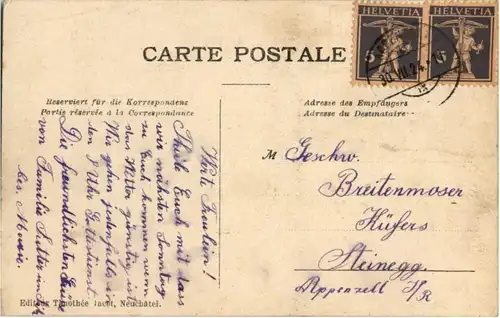 HELVETIA HELVETIA
5 5
30.VII.24
CARTE POSTALE
Reserviert für die Korrespondenz
Partie réservée à la Correspondance
Adresse des Empfängers
Adresse du Destinataire
Werte Fräulein!
Theile Euch mit dass
wir nächsten Sonntag
zu Euch kommen wenn
das Wetter günstig ist
Wir gehen jedenfalls in
den 8 Uhr Gottesdienst.
Die freundlichsten Grüsse
von Familie Sutter
bes. Marie.
M Geschw.
Breitenmoser
Küfers
Steinegg.
Appenzell I/R
Edition Timothée Jacot, Neuchâtel.